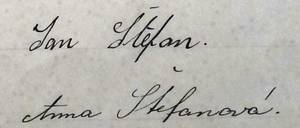 Jan Štefan.
Anna Štefanová.